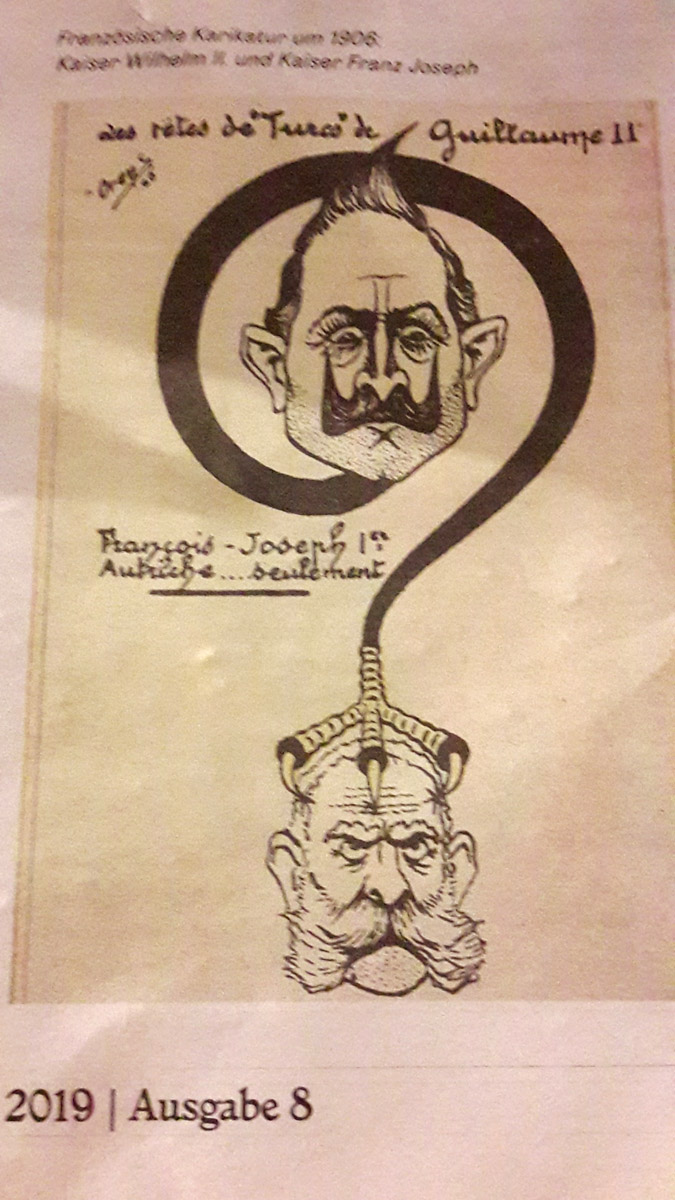 Französische Karikatur um 1906:
Kaiser Wilhelm II. und Kaiser Franz Joseph
Les têtes de "Turcs" de Guillaume II
François-Joseph Ier
Autriche... seulement
2019 | Ausgabe 8